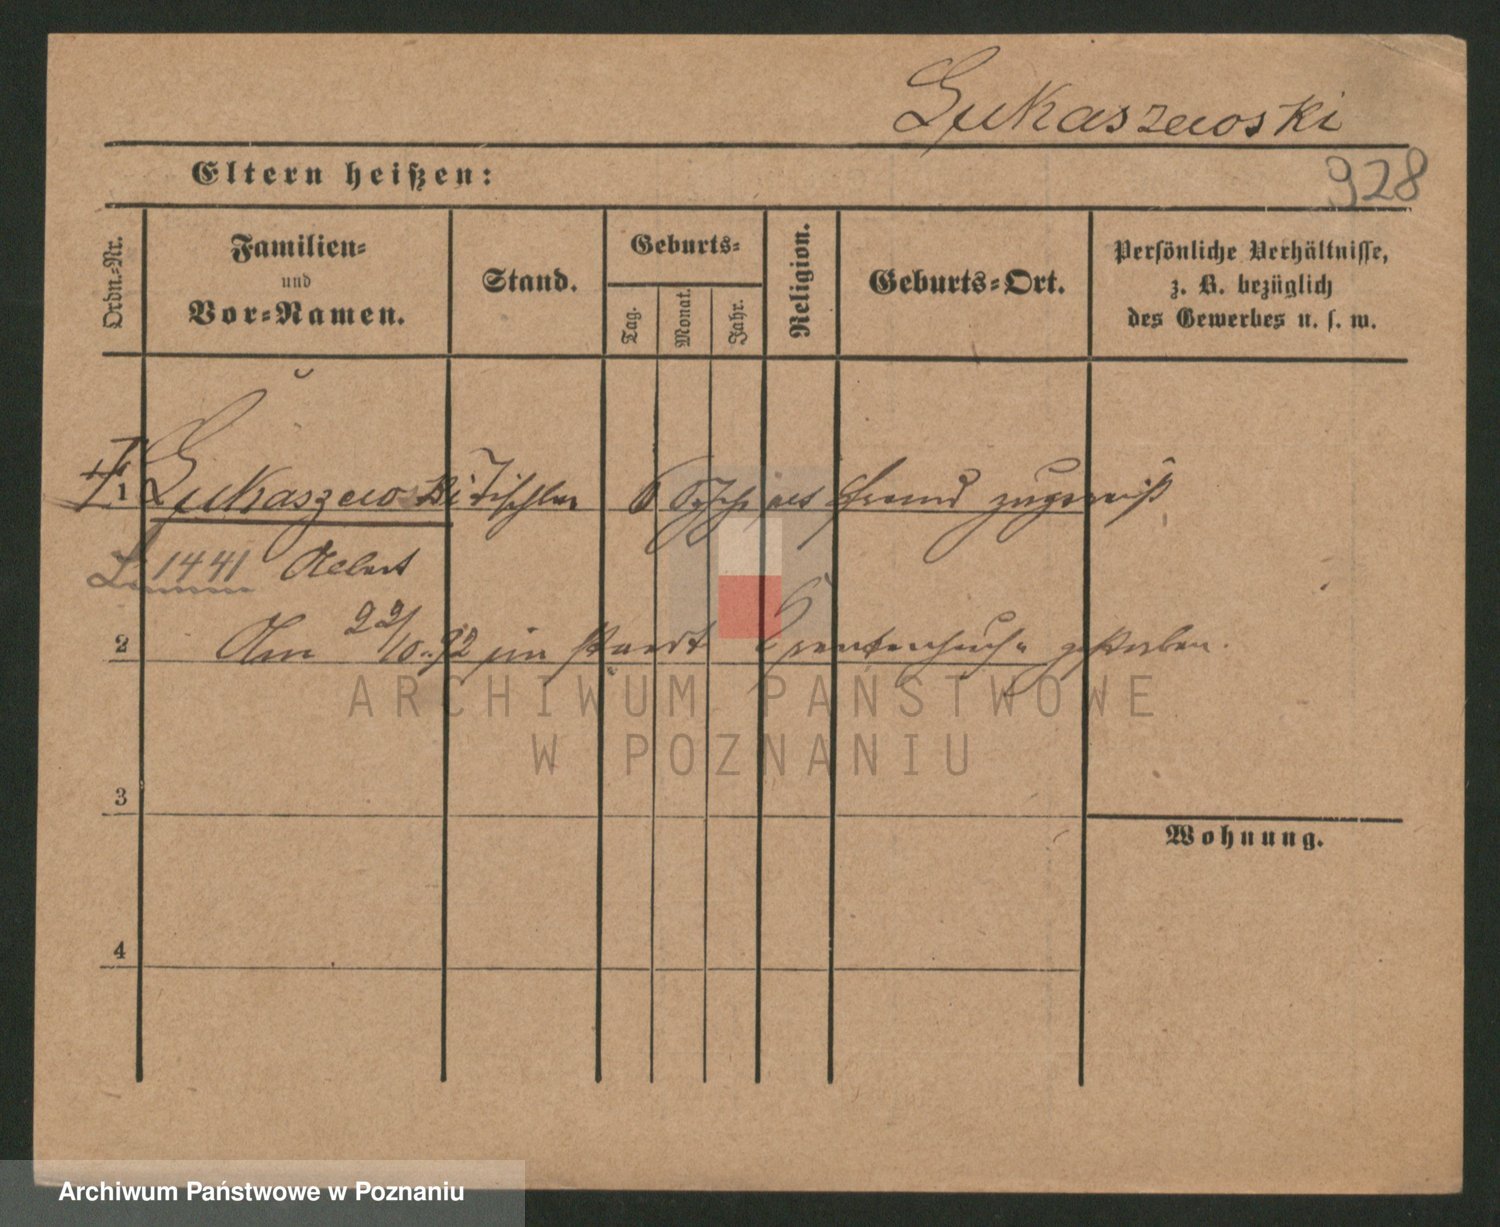 Lukaszewski
928
Eltern heißen:
Ordn.-Nr.
Familien-
und
Vor-Namen.
Stand.
Geburts-
Tag.
Monat.
Jahr.
Religion.
Geburts-Ort.
Persönliche Verhältnisse,
z. B. bezüglich
des Gewerbes u. s. w.
1 Lukaszewski Tischler als fremd
1441
2 Am 22/10. 92 im gestorben.
ARCHIWUM PAŃSTWOWE
W POZNANIU
3
Wohnung.
4
Archiwum Państwowe w Poznaniu